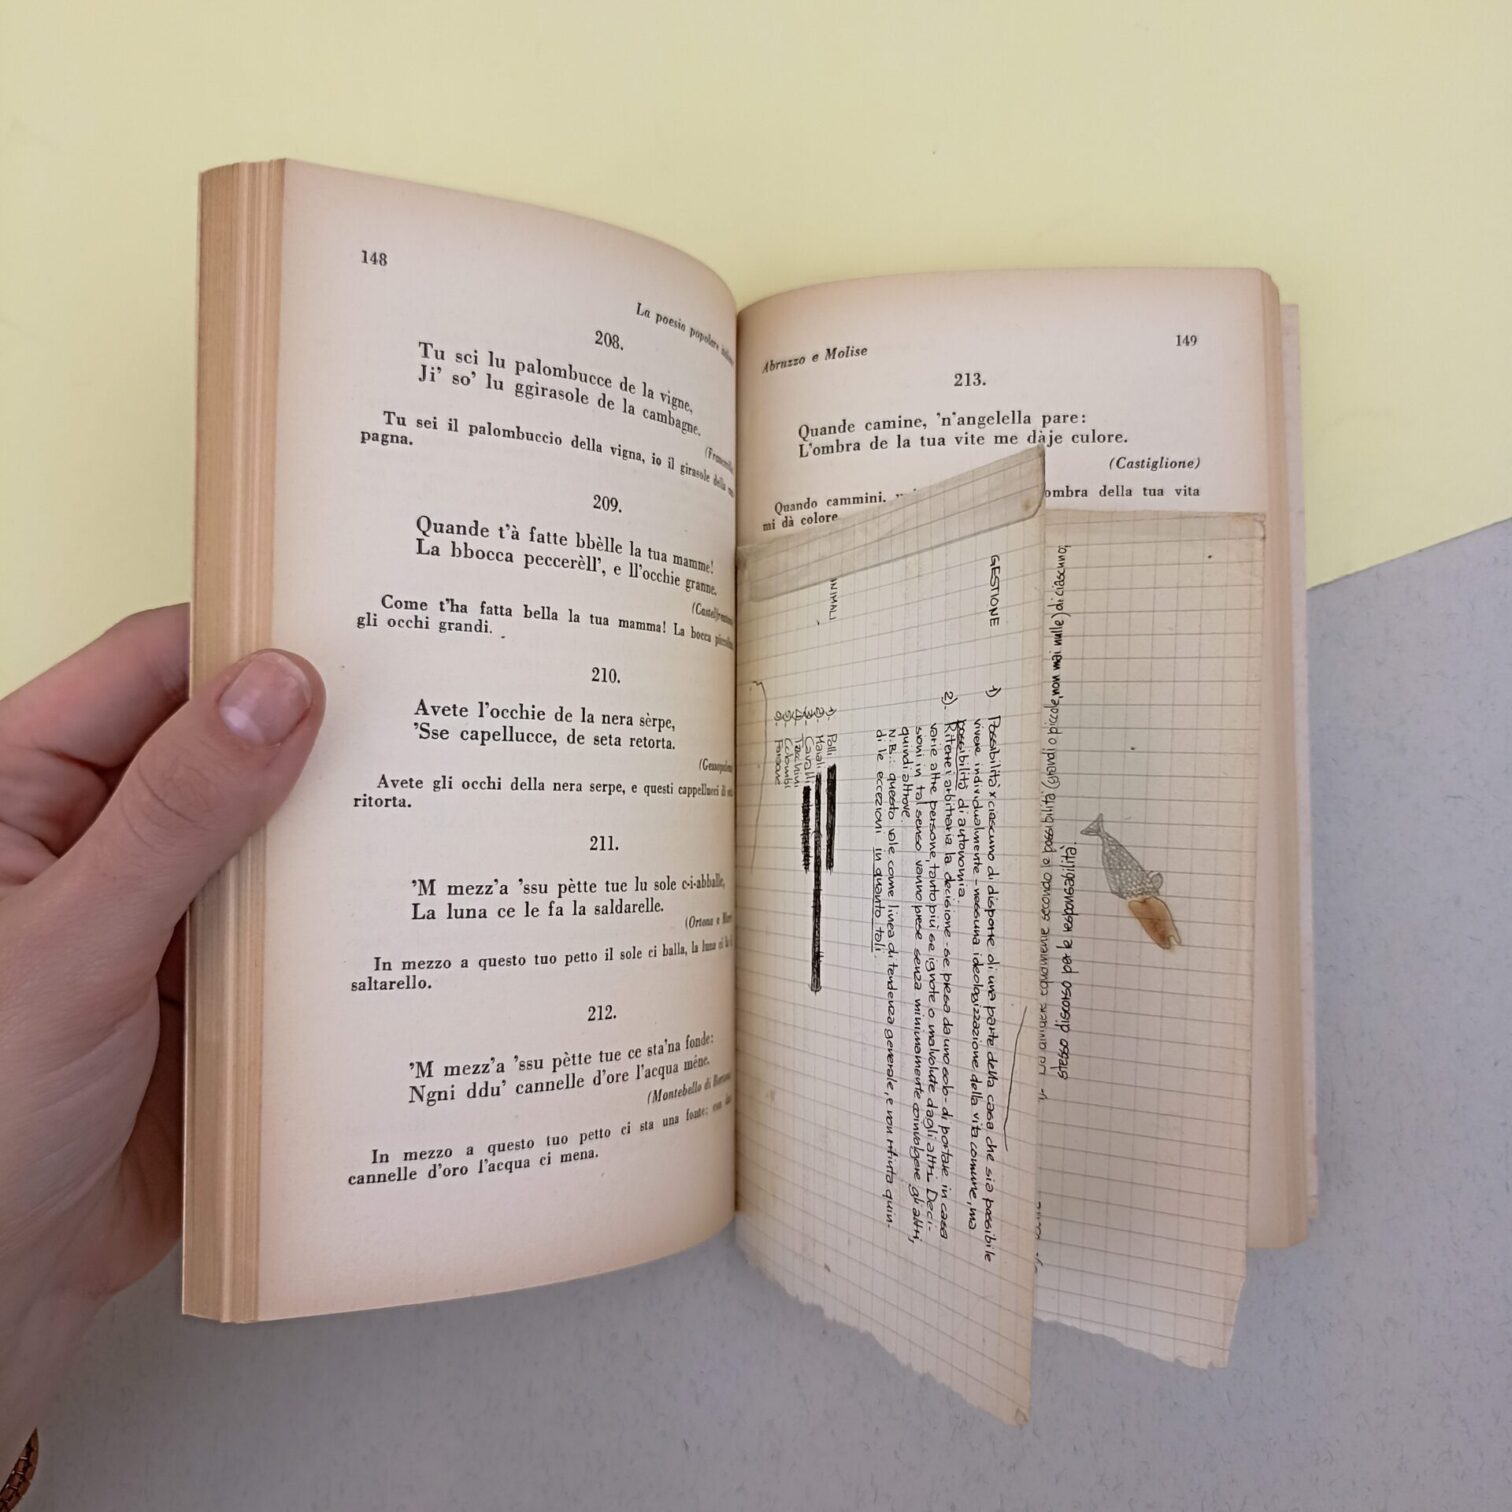 148
La poesia popolare
208.
Tu sci lu palombucce de la vigne,
Ji' so' lu ggirasole de la cambagne.
Tu sei il palombuccio della vigna, io il girasole della
pagna.
209.
Quande t'à fatte bbèlle la tua mamme!
La bbocca peccerèll', e ll'occhie granne.
Come t'ha fatta bella la tua mamma! La bocca
gli occhi grandi.
210.
Avete l'occhie de la nera sèrpe,
'Sse capellucce, de seta retorta.
Avete gli occhi della nera serpe, e questi cappellucci di
ritorta.
211.
'M mezz'a 'ssu pètte tue lu sole c-i-abballe,
La luna ce le fa la saldarelle.
(Ortona a
In mezzo a questo tuo petto il sole ci balla, la luna ci
saltarello.
212.
'M mezz'a 'ssu pètte tue ce sta'na fonde:
Ngni ddu' cannelle d'ore l'acqua méne.
(Montebello di
In mezzo a questo tuo petto ci sta una fonte: con
cannelle d'oro l'acqua ci mena.
149
Abruzzo e Molise
213.
Quande camine, 'n'angelella pare:
L'ombra de la tua vite me dàje culore.
(Castiglione)
Quando cammini, ombra della tua vita
mi dà colore
GESTIONE
1) Possibilità x ciascuno di disporre di una parte della casa che sia possibile
vivere individualmente - nessuna ideologizzazione della vita comune, ma
possibilità di autonomia.
2) Riterrei arbitraria la decisione - se presa da uno solo - di portare in casa
varie altre persone, tanto più se ignote o malvolute dagli altri. Deci-
sioni in tal senso vanno prese senza minimamente coinvolgere gli altri,
quindi altrove.
N.B.: questo vale come linea di tendenza generale, e non rifiuta quin-
di le eccezioni in quanto tali.
NIMALI
1). Polli
2). Maiali
3). Cavalli
4). Tacchini
5). Colombi
secondo le possibilità (grandi o piccole, non mai nulle) di ciascuno;
stesso discorso per le responsabilità.